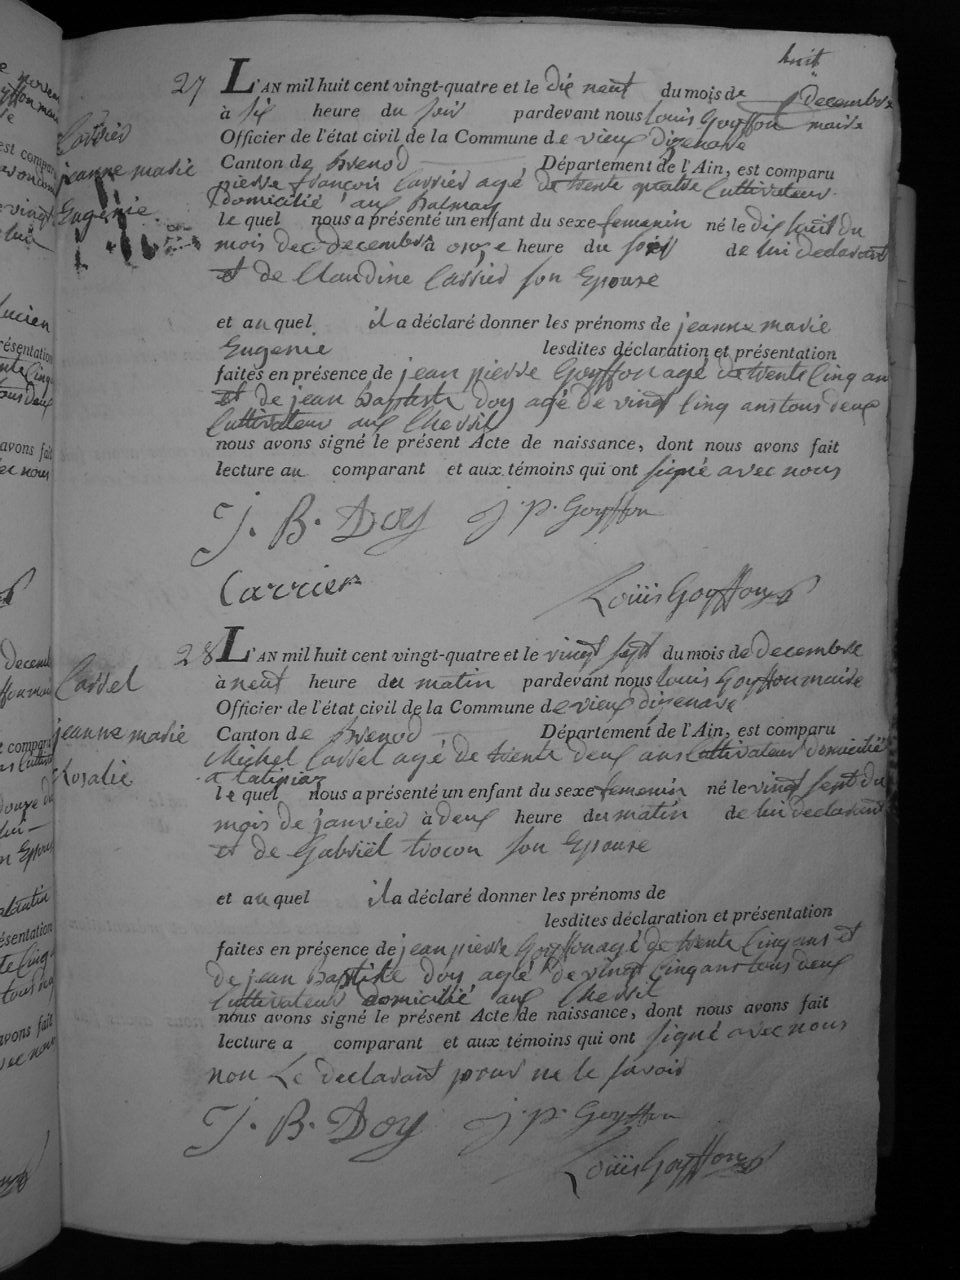 huit
27
L'AN mil huit cent vingt-quatre et le dix neuf du mois de decembre
à six heure du soir pardevant nous louis Goyffon maire
Officier de l'état civil de la Commune de vieux dizenave
Canton de brenod Département de l'Ain, est comparu
pierre françois Carrier agé de trente quatre Cultivateur
domicilié aux balmay
le quel nous a présenté un enfant du sexe femenin né le dix huit du
mois de decembre à onze heure du soir de lui declarant
et de Claudine Carrier son Epouse
et au quel il a déclaré donner les prénoms de jeanne marie
Eugenie lesdites déclaration et présentation
faites en présence de jean pierre Goyffon agé de trente Cinq an
et de jean baptiste doy agé de vingt Cinq ans tous deux
Cultivateur aux Chevril
nous avons signé le présent Acte de naissance, dont nous avons fait
lecture au comparant et aux témoins qui ont signé avec nous
J. B. Doy J. P. Goyffon
Carrier Louis Goyffon
Carrier
jeanne marie
Eugenie
28
L'AN mil huit cent vingt-quatre et le vingt sept du mois de decembre
à neuf heure du matin pardevant nous louis Goyffon maire
Officier de l'état civil de la Commune de vieux dizenave
Canton de brenod Département de l'Ain, est comparu
Michel Cassel agé de trente deux ans Cultivateur domicilié
a
le quel nous a présenté un enfant du sexe femenin né le vingt sept du
mois de janvier à deux heure du matin de lui declarant
et de Gabriël trocon son Epouse
et au quel il a déclaré donner les prénoms de
lesdites déclaration et présentation
faites en présence de jean pierre Goyffon agé de trente Cinq ans et
de jean baptiste doy agé de vingt Cinq ans tous deux
Cultivateur domicilié aux Chevril
nous avons signé le présent Acte de naissance, dont nous avons fait
lecture a comparant et aux témoins qui ont signé avec nous
non Le declarant pour ne le savoir
J. B. Doy J. P. Goyffon
Louis Goyffon
Cassel
jeanne marie
Rosalie